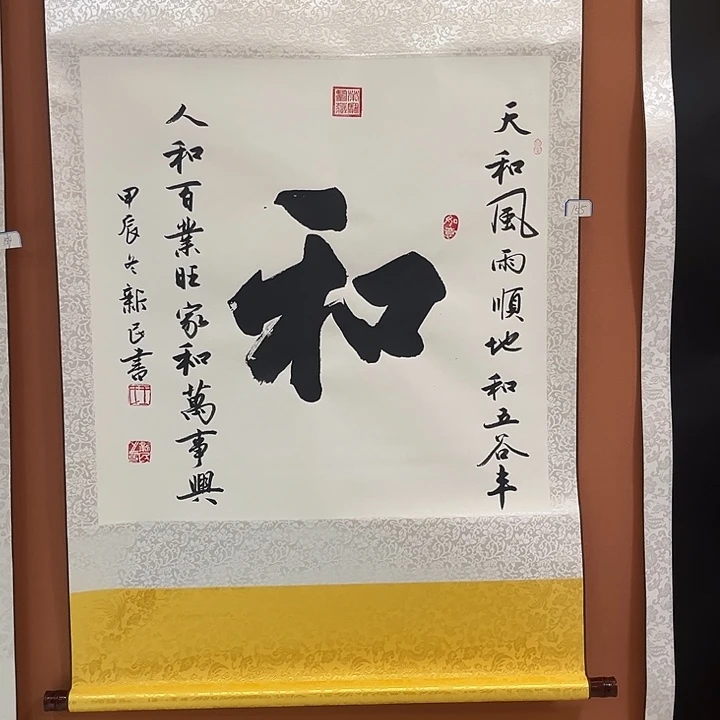 天和風雨順地和五谷丰
和
人和百業旺家和萬事興
甲辰冬新民書